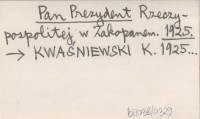 Pan Prezydent Rzeczy-
pospolitej w Zakopanem. 1925.
→ KWAŚNIEWSKI K. 1925...